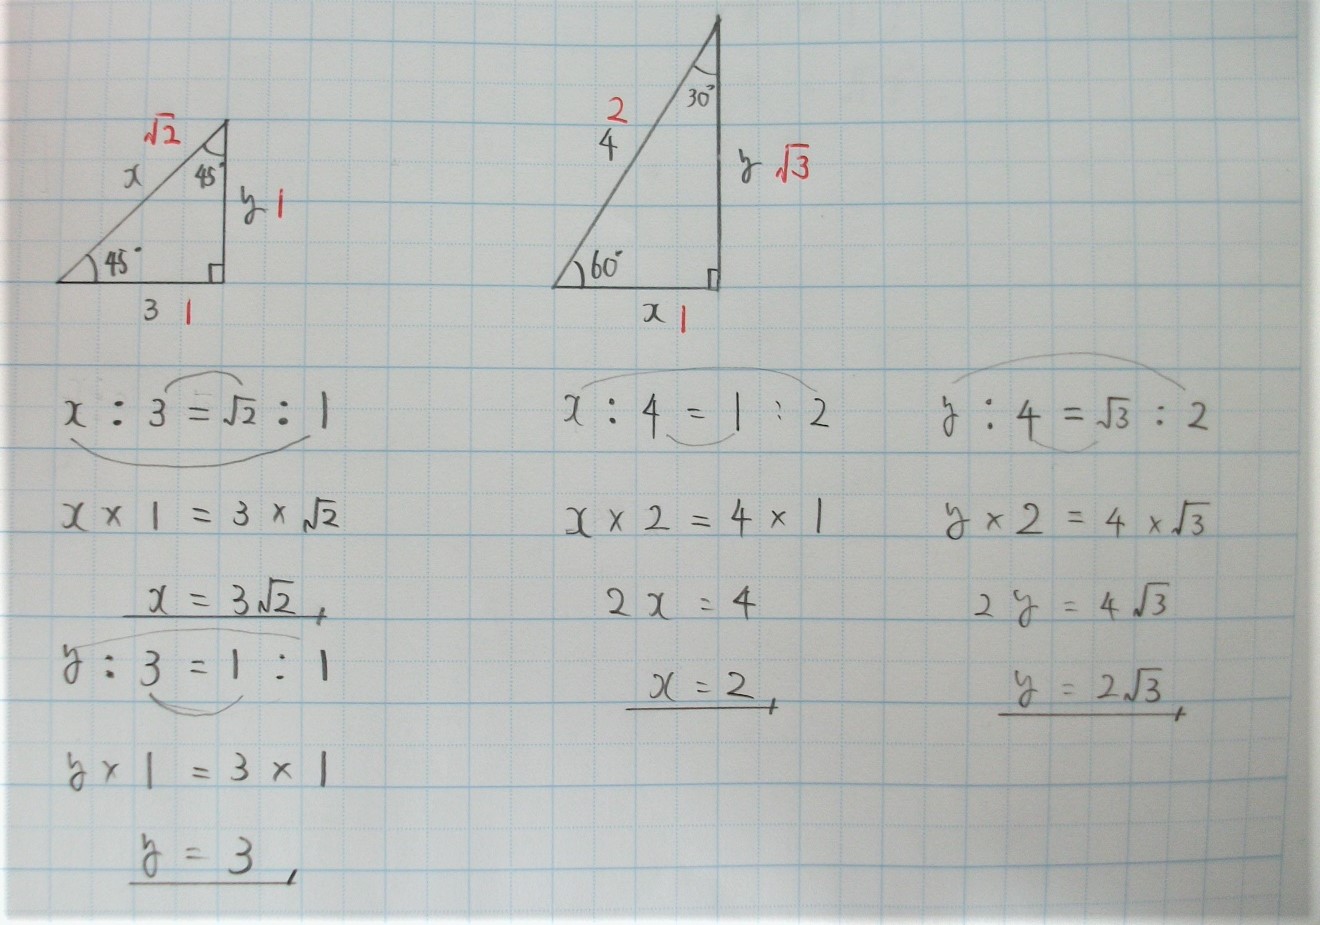 √2
x
45°
45°
y 1
3 1
2
4
30°
y √3
60°
x 1
x : 3 = √2 : 1
x × 1 = 3 × √2
x = 3√2,
y : 3 = 1 : 1
y × 1 = 3 × 1
y = 3,
x : 4 = 1 : 2
x × 2 = 4 × 1
2x = 4
x = 2,
y : 4 = √3 : 2
y × 2 = 4 × √3
2y = 4√3
y = 2√3,